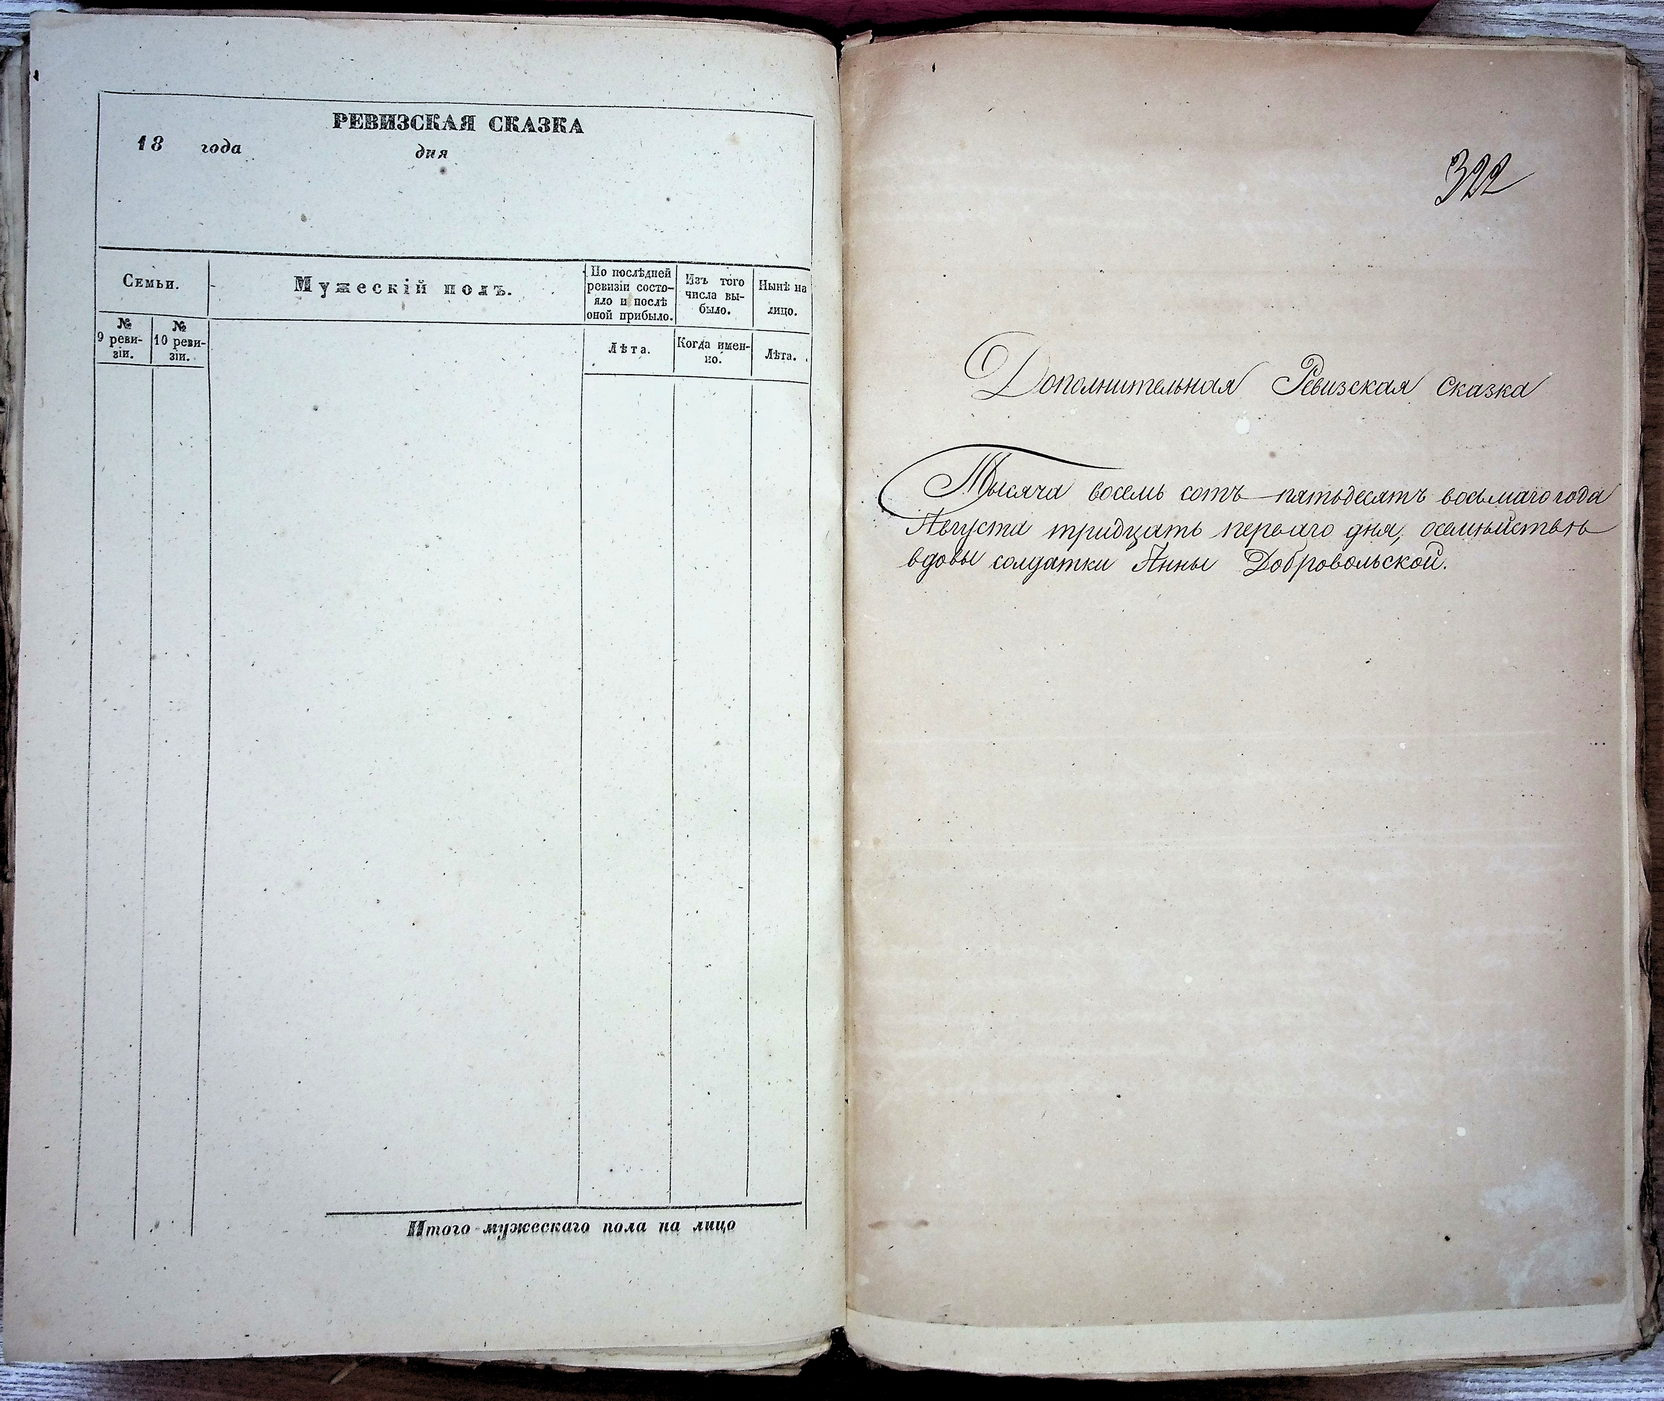 РЕВИЗСКАЯ СКАЗКА
18 года дня
Семьи.
Мужескій полъ.
По послѣдней
ревизіи состо-
яло и послѣ
оной прибыло.
Изъ того
числа вы-
было.
Нынѣ на
лицо.
№
9 реви-
зіи.
№
10 реви-
зіи.
Лѣта.
Когда имен-
но.
Лѣта.
Итого мужескаго пола на лицо
322
Дополнительная Ревизская сказка
Тысяча восемь сотъ пятьдесятъ восьмаго года
Августа тридцать перваго дня, осемѣйствѣ
вдовы солдатки Анны Добровольской.